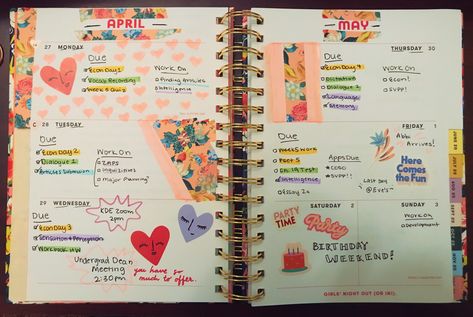 APRIL
27 MONDAY
Due
Econ Day 2
Vocab Recording
Week 5 Quiz
Work On
Finding Articles
Intelligence
28 TUESDAY
Due
Econ Day 2
Dialogue 1
Articles Submission
Work On
ZAPS
Inquizitives
major Planning!
29 WEDNESDAY
Due
Econ Day 3
Sensation + Perception
Workbook HW
KDE Zoom
2pm
Undergrad Dean
Meeting
2:30 pm
you have so
much to offer.
MAY
THURSDAY 30
Due
Econ Day 4
Dictation
Dialogue 2
Language
Memory
Work On
Econ!
SVPP!
FRIDAY 1
Due
Intelligence
Essay 2
Apps Due
SVPP!!
Last Day
@ Eve's
Abbi
Arrives!
Here
Comes
the Fun
SATURDAY 2
PARTY
TIME
Party
BIRTHDAY
WEEKEND!
SUNDAY 3
Work on
Development
GIRLS' NIGHT OUT (OR IN).